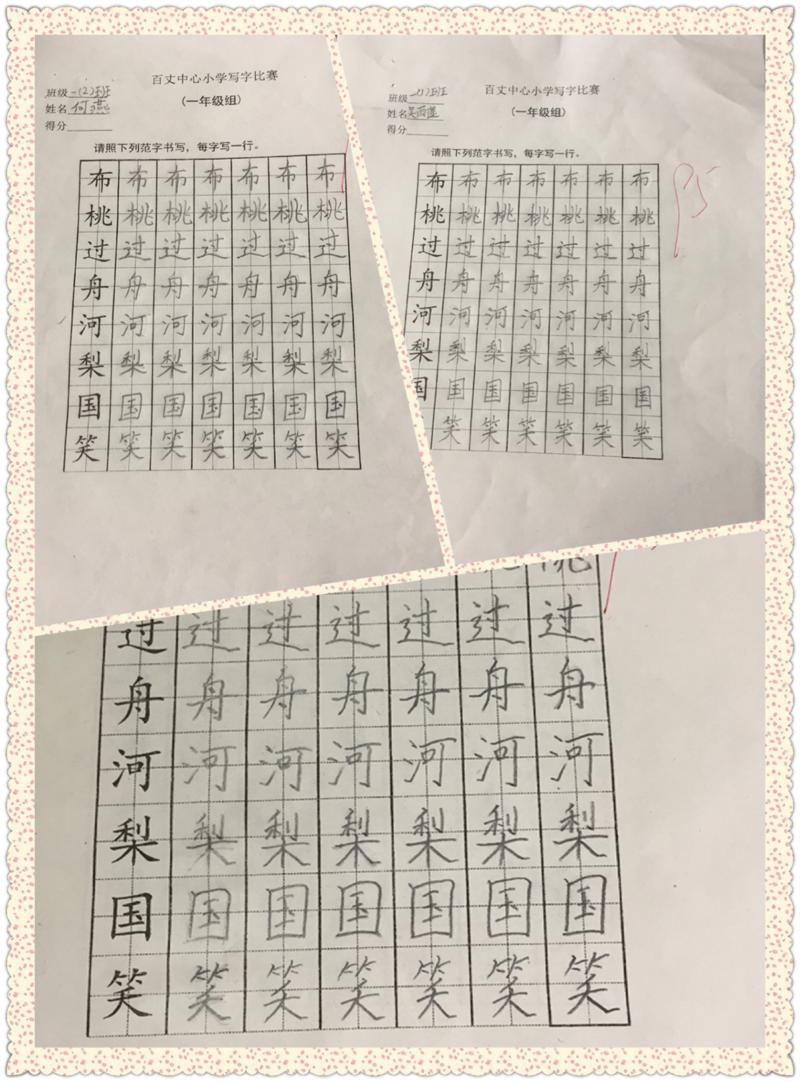 百丈中心小学写字比赛
班级 一(2)班
(一年级组)
姓名 何燕
得分
请照下列范字书写，每字写一行。
布 布 布 布 布 布 布
桃 桃 桃 桃 桃 桃 桃
过 过 过 过 过 过 过
舟 舟 舟 舟 舟 舟 舟
河 河 河 河 河 河 河
梨 梨 梨 梨 梨 梨 梨
国 国 国 国 国 国 国
笑 笑 笑 笑 笑 笑 笑
百丈中心小学写字比赛
班级 一(1)班
(一年级组)
姓名
得分
请照下列范字书写，每字写一行。
95
布 布 布 布 布 布 布
桃 桃 桃 桃 桃 桃 桃
过 过 过 过 过 过 过
舟 舟 舟 舟 舟 舟 舟
河 河 河 河 河 河 河
梨 梨 梨 梨 梨 梨 梨
国 国 国 国 国 国 国
笑 笑 笑 笑 笑 笑
过 过 过 过 过 过 过
舟 舟 舟 舟 舟 舟 舟
河 河 河 河 河 河 河
梨 梨 梨 梨 梨 梨 梨
国 国 国 国 国 国 国
笑 笑 笑 笑 笑 笑 笑